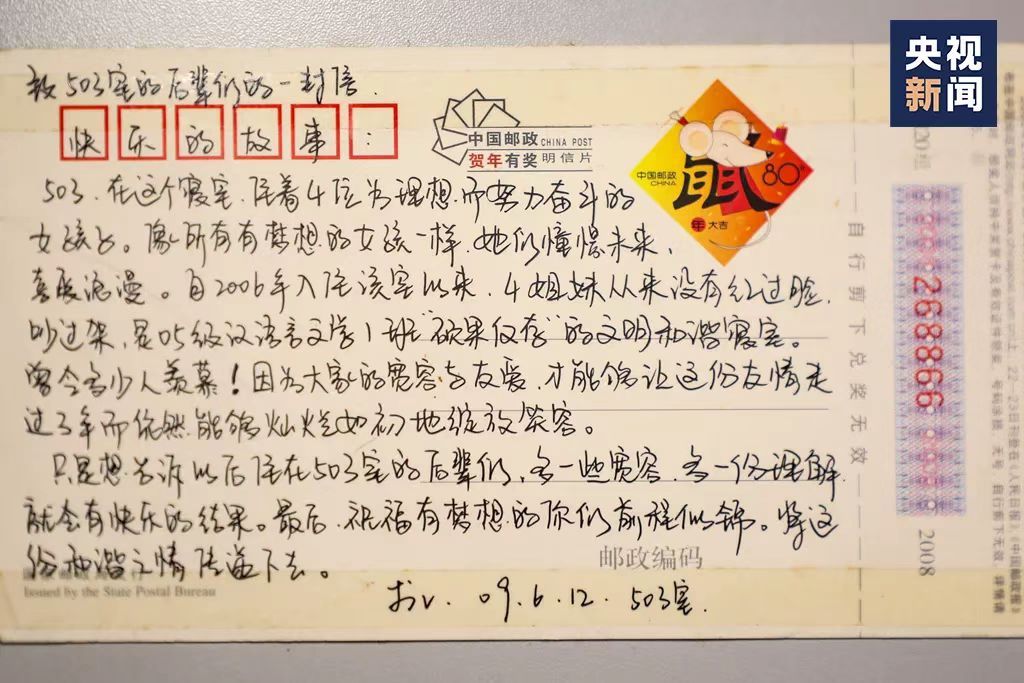 央视
新闻
致503室的后辈们的一封信.
快乐的故事:
中国邮政 CHINA POST
贺年有奖 明信片
中国邮政
CHINA
鼠
80分
年 大吉
503.在这个寝室.住着4位为理想而努力奋斗的
女孩子。像所有有梦想的女孩一样,她们憧憬未来,
喜爱浪漫。自2006年入住该室以来.4姐妹从来没有红过脸,
吵过架,是05级汉语言文学1班"硕果仅存"的文明和谐寝室。
曾令多少人羡慕!因为大家的宽容与友爱,才能够让这份友情走
过3年而依然能够灿烂如初地绽放笑容。
只是想告诉以后住在503室的后辈们,多一些宽容.多一份理解
就会有快乐的结果。最后.祝福有梦想的你们前程似锦。将这
份和谐之情传递下去。
邮政编码
Issued by the State Postal Bureau
09.6.12. 503室.
自行剪下兑奖无效
268866
2008